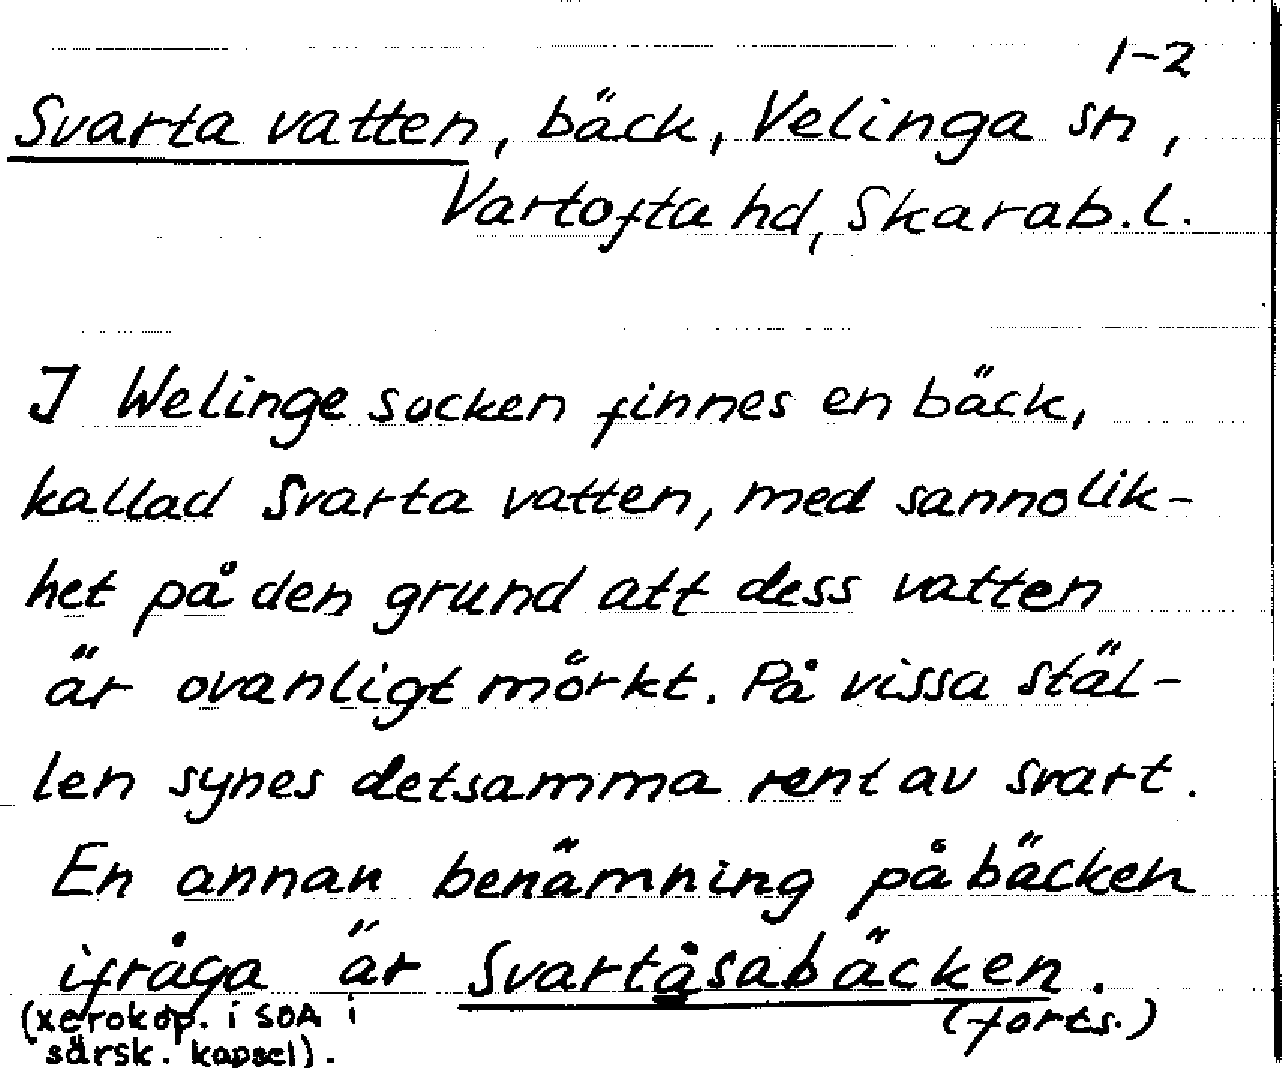 1-2
Svarta vatten, bäck, Velinga sn,
Vartofta hd, Skarab.l.
I Welinge socken finnes en bäck,
kallad Svarta vatten, med sannolik-
het på den grund att dess vatten
är ovanligt mörkt. På vissa stäl-
len synes detsamma rent av svart.
En annan benämning på bäcken
ifråga är Svartåsabäcken.
(xerokop. i SOA i
särsk. kapsel).
(forts.)